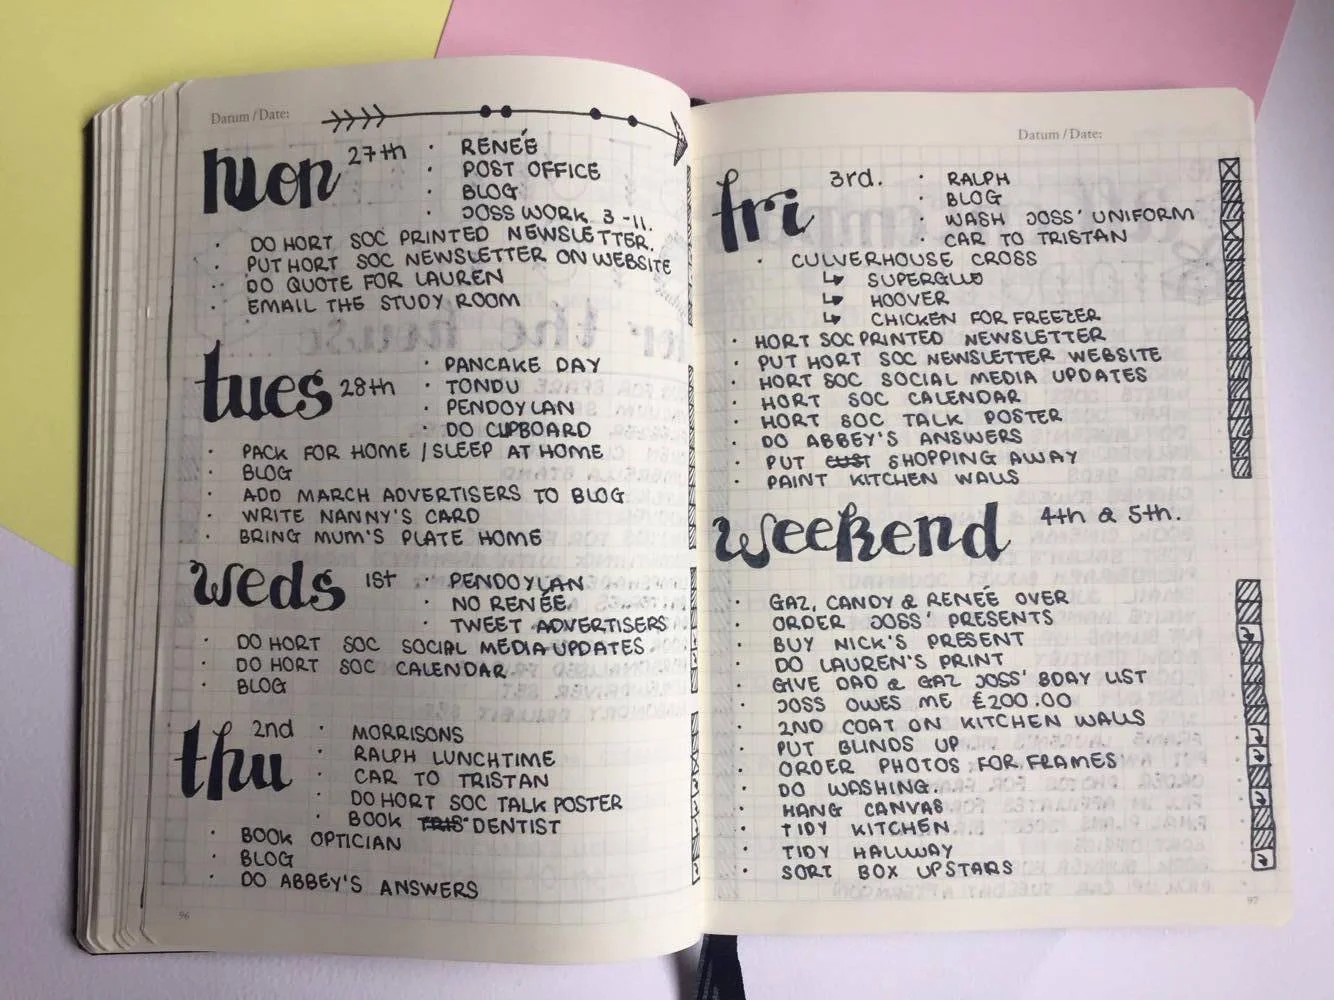 Datum / Date:
Mon 27th · RENÉE
· POST OFFICE
· BLOG
· JOSS WORK 3-11.
· DO HORT SOC PRINTED NEWSLETTER.
· PUT HORT SOC NEWSLETTER ON WEBSITE
· DO QUOTE FOR LAUREN
· EMAIL THE STUDY ROOM
tues 28th · PANCAKE DAY
· TONDU
· PENDOYLAN
· DO CUPBOARD
· PACK FOR HOME / SLEEP AT HOME
· BLOG
· ADD MARCH ADVERTISERS TO BLOG
· WRITE NANNY'S CARD
· BRING MUM'S PLATE HOME
weds 1st · PENDOYLAN
· NO RENÉE
· TWEET ADVERTISERS
· DO HORT SOC SOCIAL MEDIA UPDATES
· DO HORT SOC CALENDAR
· BLOG
thu 2nd · MORRISONS
· RALPH LUNCHTIME
· CAR TO TRISTAN
· DO HORT SOC TALK POSTER
· BOOK DENTIST
· BOOK OPTICIAN
· BLOG
· DO ABBEY'S ANSWERS
96
Datum / Date:
fri 3rd. · RALPH
· BLOG
· WASH JOSS' UNIFORM
· CAR TO TRISTAN
· CULVERHOUSE CROSS
↳ SUPERGLUE
↳ HOOVER
↳ CHICKEN FOR FREEZER
· HORT SOC PRINTED NEWSLETTER
· PUT HORT SOC NEWSLETTER WEBSITE
· HORT SOC SOCIAL MEDIA UPDATES
· HORT SOC CALENDAR
· HORT SOC TALK POSTER
· DO ABBEY'S ANSWERS
· PUT SHOPPING AWAY
· PAINT KITCHEN WALLS
weekend 4th & 5th.
· GAZ, CANDY & RENÉE OVER
· ORDER JOSS' PRESENTS
· BUY NICK'S PRESENT
· DO LAUREN'S PRINT
· GIVE DAD & GAZ JOSS' BDAY LIST
· JOSS OWES ME £200.00
· 2ND COAT ON KITCHEN WALLS
· PUT BLINDS UP
· ORDER PHOTOS FOR FRAMES
· DO WASHING.
· HANG CANVAS
· TIDY KITCHEN
· TIDY HALLWAY
· SORT BOX UPSTAIRS
97